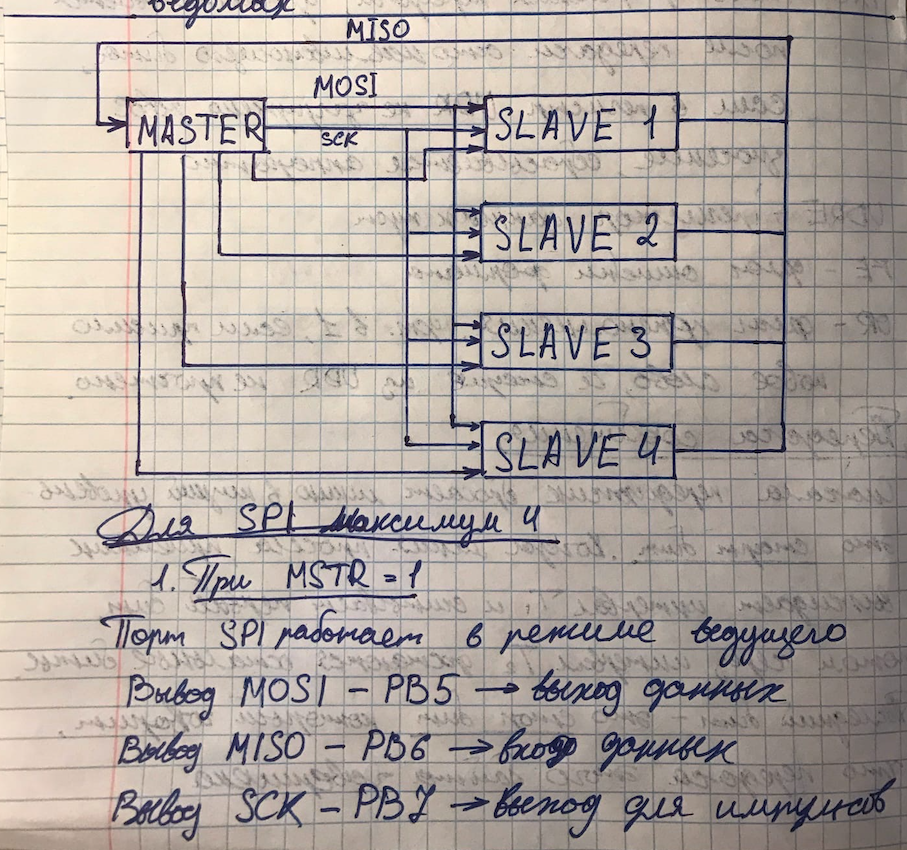 ведомых
MISO
MOSI
MASTER
SCK
SLAVE 1
SLAVE 2
SLAVE 3
SLAVE 4
Для SPI максимум 4
1. При MSTR = 1
Порт SPI работает в режиме ведущего
Вывод MOSI – PB5 → выход данных
Вывод MISO – PB6 → вход данных
Вывод SCK – PB7 → выход для импульсов